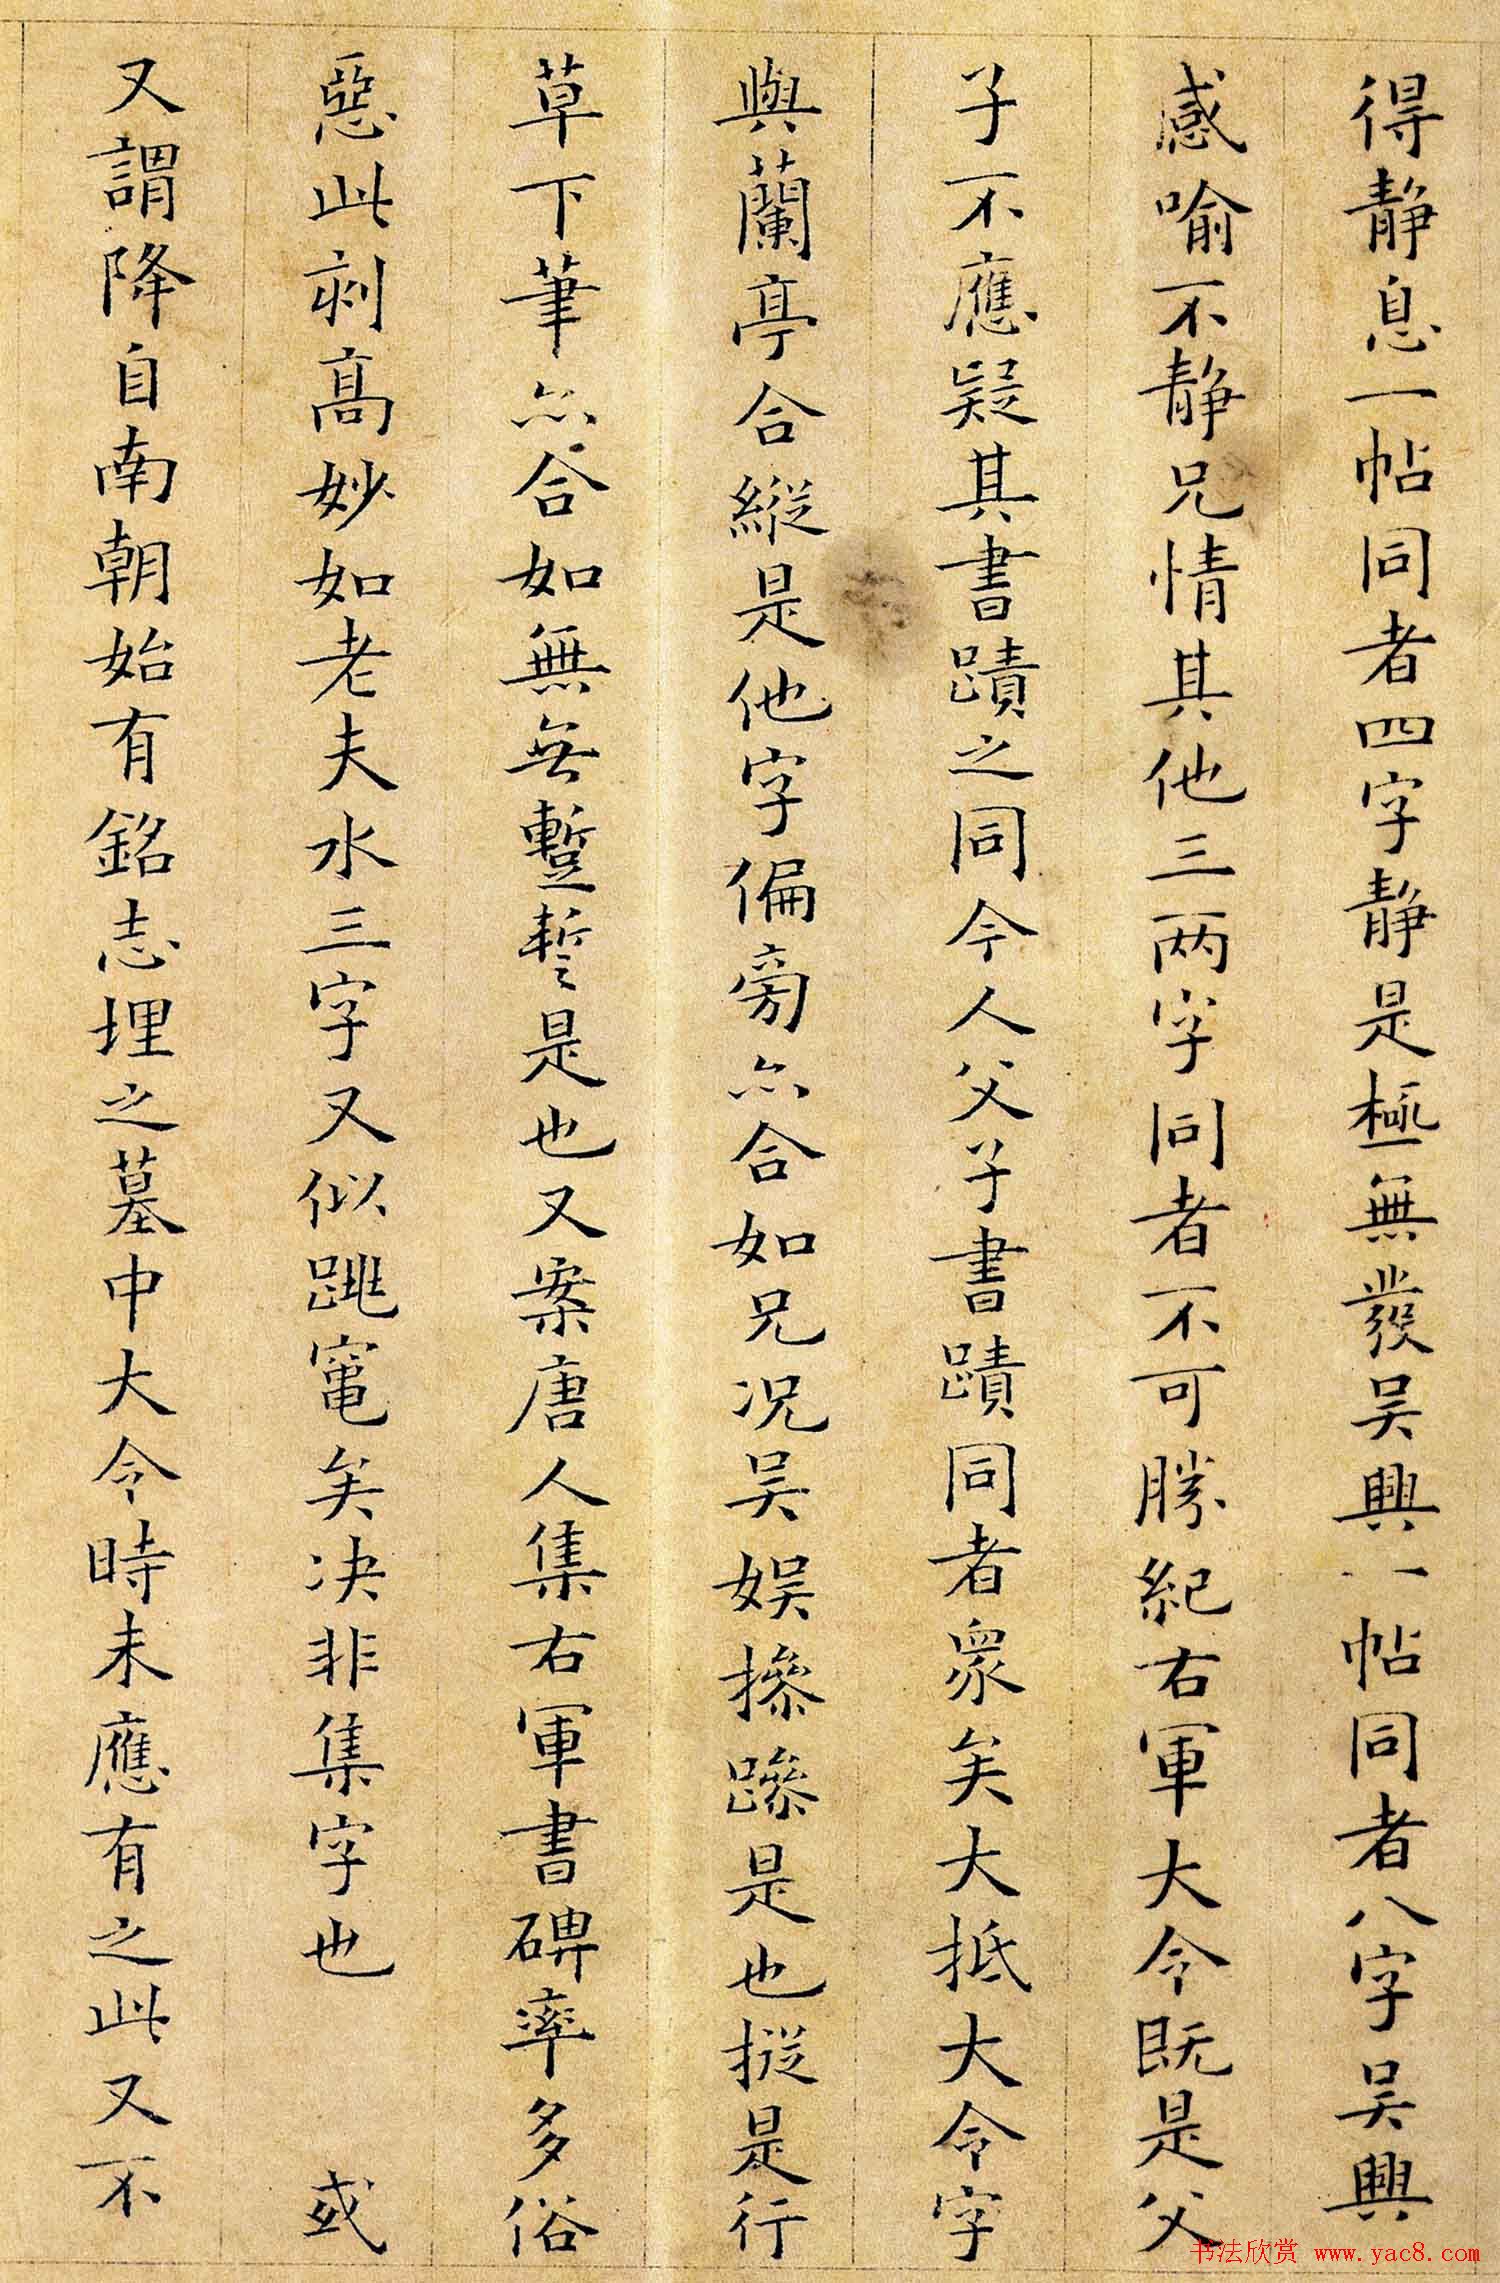 得静息一帖同者四字静是極無發吴興一帖同者八字吴興
感喻不静兄情其他三两字同者不可勝紀右軍大令既是父
子不應疑其書蹟之同今人父子書蹟同者衆矣大抵大令字
與蘭亭合縱是他字偏旁亦合如兄况吴娱摻蹤是也摐是行
草下筆亦合如無无蹔誓是也又案唐人集右軍書碑率多俗
惡此刻高妙如老夫水三字又似跳竄矣决非集字也 或
又謂降自南朝始有銘志埋之墓中大令時未應有之此又不
书法欣赏 www.yac8.com